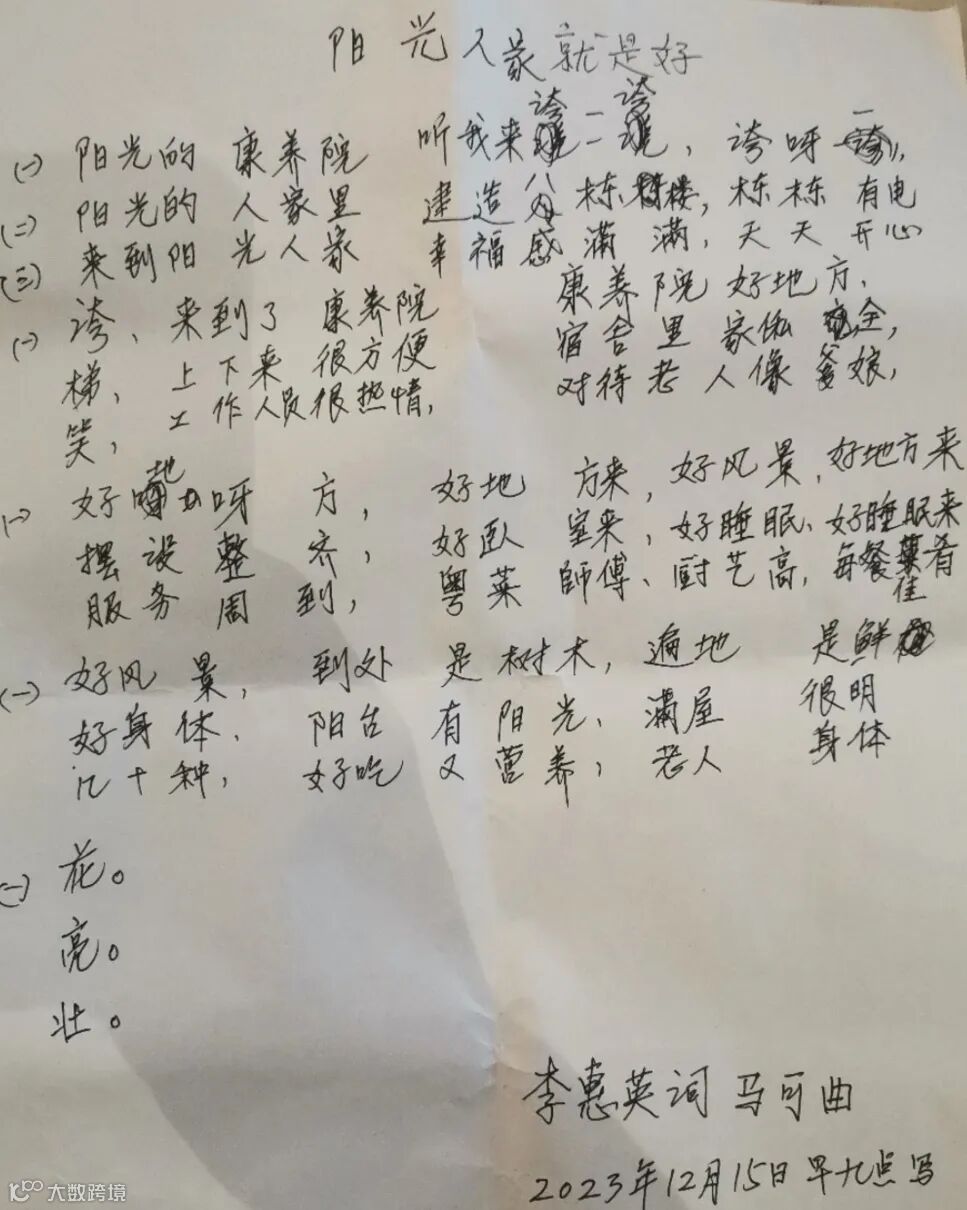 阳光人家就是好
(一) 阳光的 康养院 听我来夸一夸, 夸呀一夸,
(二) 阳光的 人家里 建造八栋楼, 栋栋 有电
(三) 来到阳光人家 幸福感满满, 天天 开心
(一) 夸、来到了 康养院 康养院好地方,
梯, 上下来 很方便 宿舍里 家俬 全,
笑, 工作人员很热情, 对待老人像爹娘,
(一) 好地呀方, 好地方来, 好风景, 好地方来
摆设整齐, 好卧室来, 好睡眠、好睡眠来
服务周到, 粤菜師傅、厨艺高, 每餐佳肴
(一) 好风景, 到处是树木, 遍地是鲜
好身体、阳台有阳光、满屋很明
几十种, 好吃又营养, 老人身体
(一) 花。
亮。
壮。
李惠英词 马可曲
2023年12月15日早九点写
大数跨境